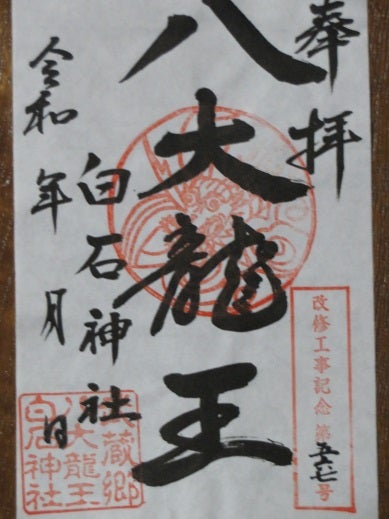 奉拝
八大龍王
白石神社
令和 年 月 日
改修工事記念 第五七号
蔵郷
八大龍王
白石神社